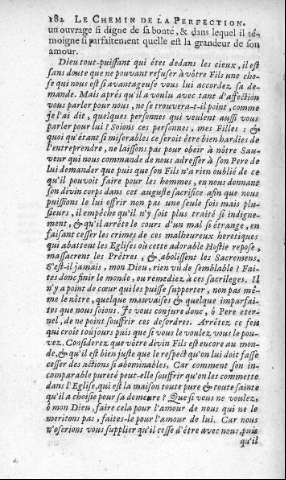 182 LE CHEMIN DE LA PERFECTION.
un ouvrage si digne de sa bonté, & dans lequel il té-
moigne si parfaitement quelle est la grandeur de son
amour.
Dieu tout-puissant qui étes dedans les cieux, il est
sans doute que ne pouvant refuser à vôtre Fils une cho-
se qui nous est si avantageuse vous lui accordez sa de-
mande. Mais aprés qu'il a voulu avec tant d'affection
vous parler pour nous, ne se trouvera-t-il point, comme
je l'ai dit, quelques personnes qui veulent aussi vous
parler pour lui? Soions ces personnes, mes Filles: &
quoi qu'étant si miserables ce seroit être bien hardies de
l'entreprendre, ne laissons pas pour obeir à nôtre Sau-
veur qui nous commande de nous adresser à son Pere de
lui demander que puis que son Fils n'a rien oublié de ce
qu'il pouvoit faire pour les hommes, en nous donnant
son divin corps dans cet auguste sacrifice afin que nous
puissions le lui offrir non pas une seule fois mais plu-
sieurs, il empêche qu'il n'y soit plus traité si indigne-
ment, & qu'il arrête le cours d'un mal si étrange, en
faisant cesser les crimes de ces malheureux heretiques
qui abattent les Eglises où cette adorable Hostie repose,
massacrent les Prêtres, & abolissent les Sacremens.
S'est-il jamais, mon Dieu, rien vû de semblable? Fai-
tes donc finir le monde, ou remediez à ces sacrileges. Il
n'y a point de cœur qui les puisse supporter, non pas mê-
me le nôtre, quelque mauvaises & quelque imparfai-
tes que nous soions. Je vous conjure donc, ô Pere eter-
nel, de ne point souffrir ces desordres. Arrêtez ce feu
qui croît toûjours puis que si vous le voulez vous le pou-
vez. Considerez que vôtre divin Fils est encore au mon-
de, & qu'il est bien juste que le respect qu'on lui doit fasse
cesser des actions si abominables. Car comment son in-
comparable pureté peut-elle souffrir qu'on les commette
dans l'Eglise, qui est la maison toute pure & toute sainte
qu'il a choisie pour sa demeure? Que si vous ne voulez,
ô mon Dieu, faire cela pour l'amour de nous qui ne le
meritons pas, faites-le pour l'amour de lui. Car nous
n'oserions vous supplier qu'il cesse d'être avec nous, puis
qu'il